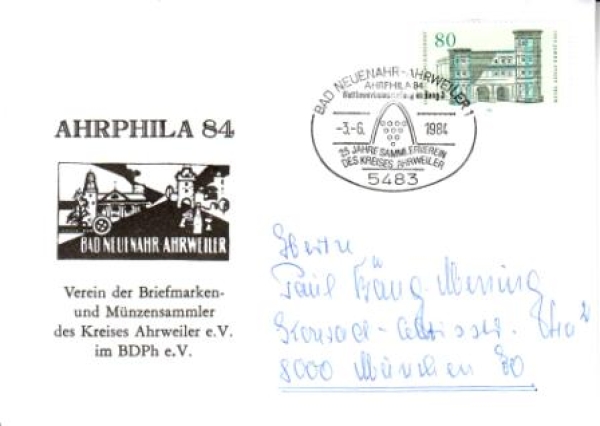 80
2000 JAHRE STADT TRIER
BAD NEUENAHR-AHRWEILER 1
AHRPHILA 84
Wettbewerbsausstellung im Rang 3
-3.-6. 1984
25 JAHRE SAMMLERVEREIN
DES KREISES AHRWEILER
5483
AHRPHILA 84
BAD NEUENAHR AHRWEILER
Verein der Briefmarken-
und Münzensammler
des Kreises Ahrweiler e.V.
im BDPh e.V.
Herrn
Paul
8000 München 80